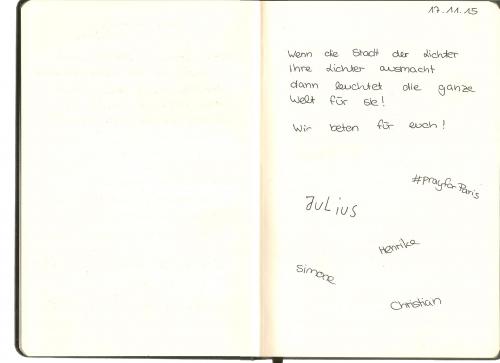 17.11.15
Wenn die Stadt der Lichter
ihre Lichter ausmacht
dann leuchtet die ganze
Welt für sie!
Wir beten für euch!
#prayforParis
Julius
Henrike
Simone
Christian